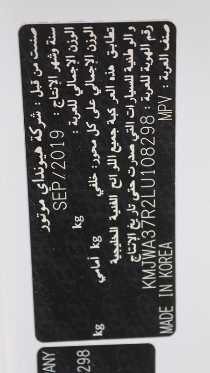 صنعت من قبل : شركة هيونداي موتور
سنة وشهر الإنتاج : SEP/2019
الوزن الإجمالي للعربة : kg
الوزن الإجمالي على كل محور: خلفي kg أمامي kg
تطابق هذه العربة جميع اللوائح الفنية الخليجية
والوطنية للسيارات التي صدرت حتى تاريخ الإنتاج
رقم الهوية للعربة : KMJWA37R2LU108298
صنف العربة : MPV MADE IN KOREA
ANY
298